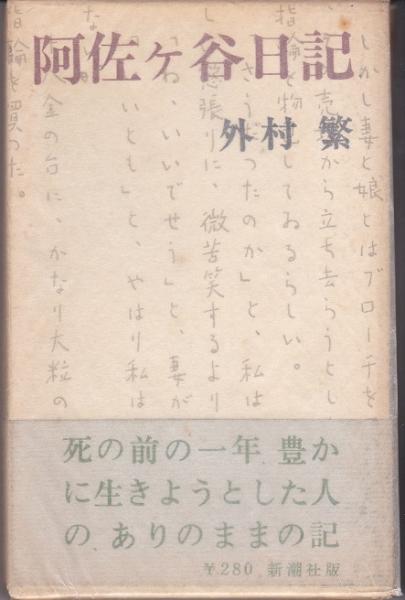 阿佐ヶ谷日記
外村 繁
しかし妻と娘とはブローチを
売 から立ち去らうとし
指輪を物 してゐるらしい。
さう つたのか」と、私は
張りに、微苦笑するより
「ね、いいでせう」と、妻が
いとも」と、やはり私は
な。
金の台に、かなり大粒の
指輪を買つた。
死の前の一年 豊か
に生きようとした人
の ありのままの記
¥280 新潮社版